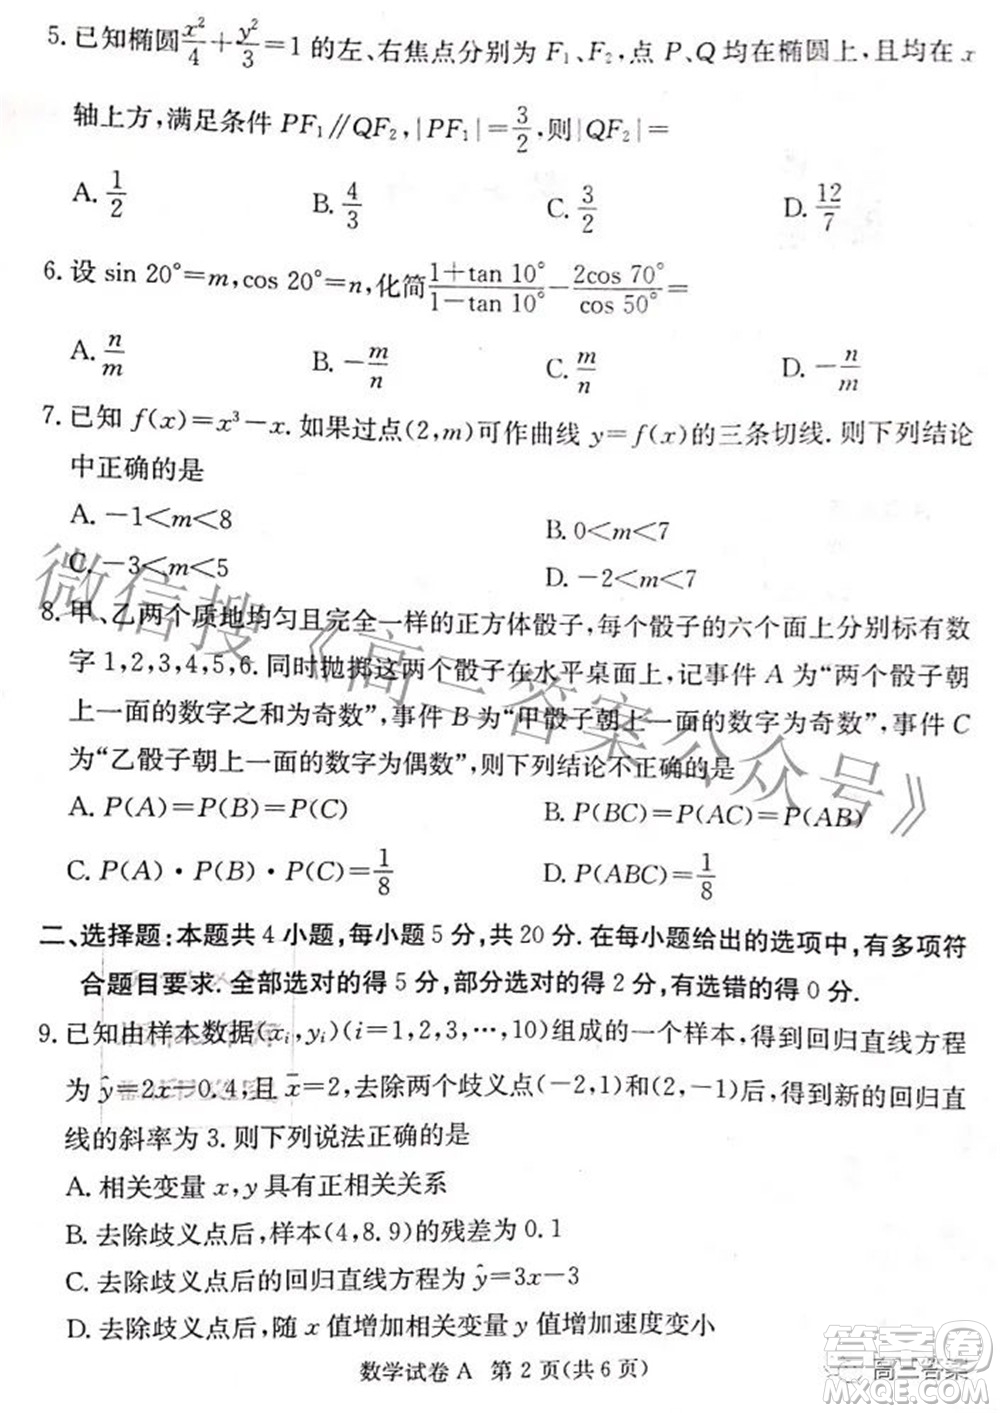 5. 已知椭圆x²/4+y²/3=1 的左、右焦点分别为 F₁、F₂, 点 P、Q 均在椭圆上, 且均在 x
轴上方, 满足条件 PF₁∥QF₂, |PF₁|=3/2, 则|QF₂|=
A. 1/2 B. 4/3 C. 3/2 D. 12/7
6. 设 sin 20°=m, cos 20°=n, 化简 (1+tan 10°)/(1-tan 10°) - 2cos 70°/cos 50° =
A. n/m B. -m/n C. m/n D. -n/m
7. 已知 f(x)=x³-x. 如果过点(2,m)可作曲线 y=f(x)的三条切线. 则下列结论
中正确的是
A. -1<m<8 B. 0<m<7
C. -3<m<5 D. -2<m<7
8. 甲、乙两个质地均匀且完全一样的正方体骰子, 每个骰子的六个面上分别标有数
字 1,2,3,4,5,6. 同时抛掷这两个骰子在水平桌面上, 记事件 A 为“两个骰子朝
上一面的数字之和为奇数”, 事件 B 为“甲骰子朝上一面的数字为奇数”, 事件 C
为“乙骰子朝上一面的数字为偶数”, 则下列结论不正确的是
A. P(A)=P(B)=P(C) B. P(BC)=P(AC)=P(AB)
C. P(A)·P(B)·P(C)=1/8 D. P(ABC)=1/8
二、选择题:本题共 4 小题, 每小题 5 分, 共 20 分. 在每小题给出的选项中, 有多项符
合题目要求. 全部选对的得 5 分, 部分选对的得 2 分, 有选错的得 0 分.
9. 已知由样本数据(xᵢ,yᵢ)(i=1,2,3,…,10)组成的一个样本, 得到回归直线方程
为 ŷ=2x-0.4, 且 x̄=2, 去除两个歧义点(-2,1)和(2,-1)后, 得到新的回归直
线的斜率为 3. 则下列说法正确的是
A. 相关变量 x, y 具有正相关关系
B. 去除歧义点后, 样本(4,8.9)的残差为 0.1
C. 去除歧义点后的回归直线方程为 ŷ=3x-3
D. 去除歧义点后, 随 x 值增加相关变量 y 值增加速度变小
数学试卷 A 第 2 页(共 6 页)
微信搜《高三答案公众号》
高三答案
答案圈
MXQE.COM